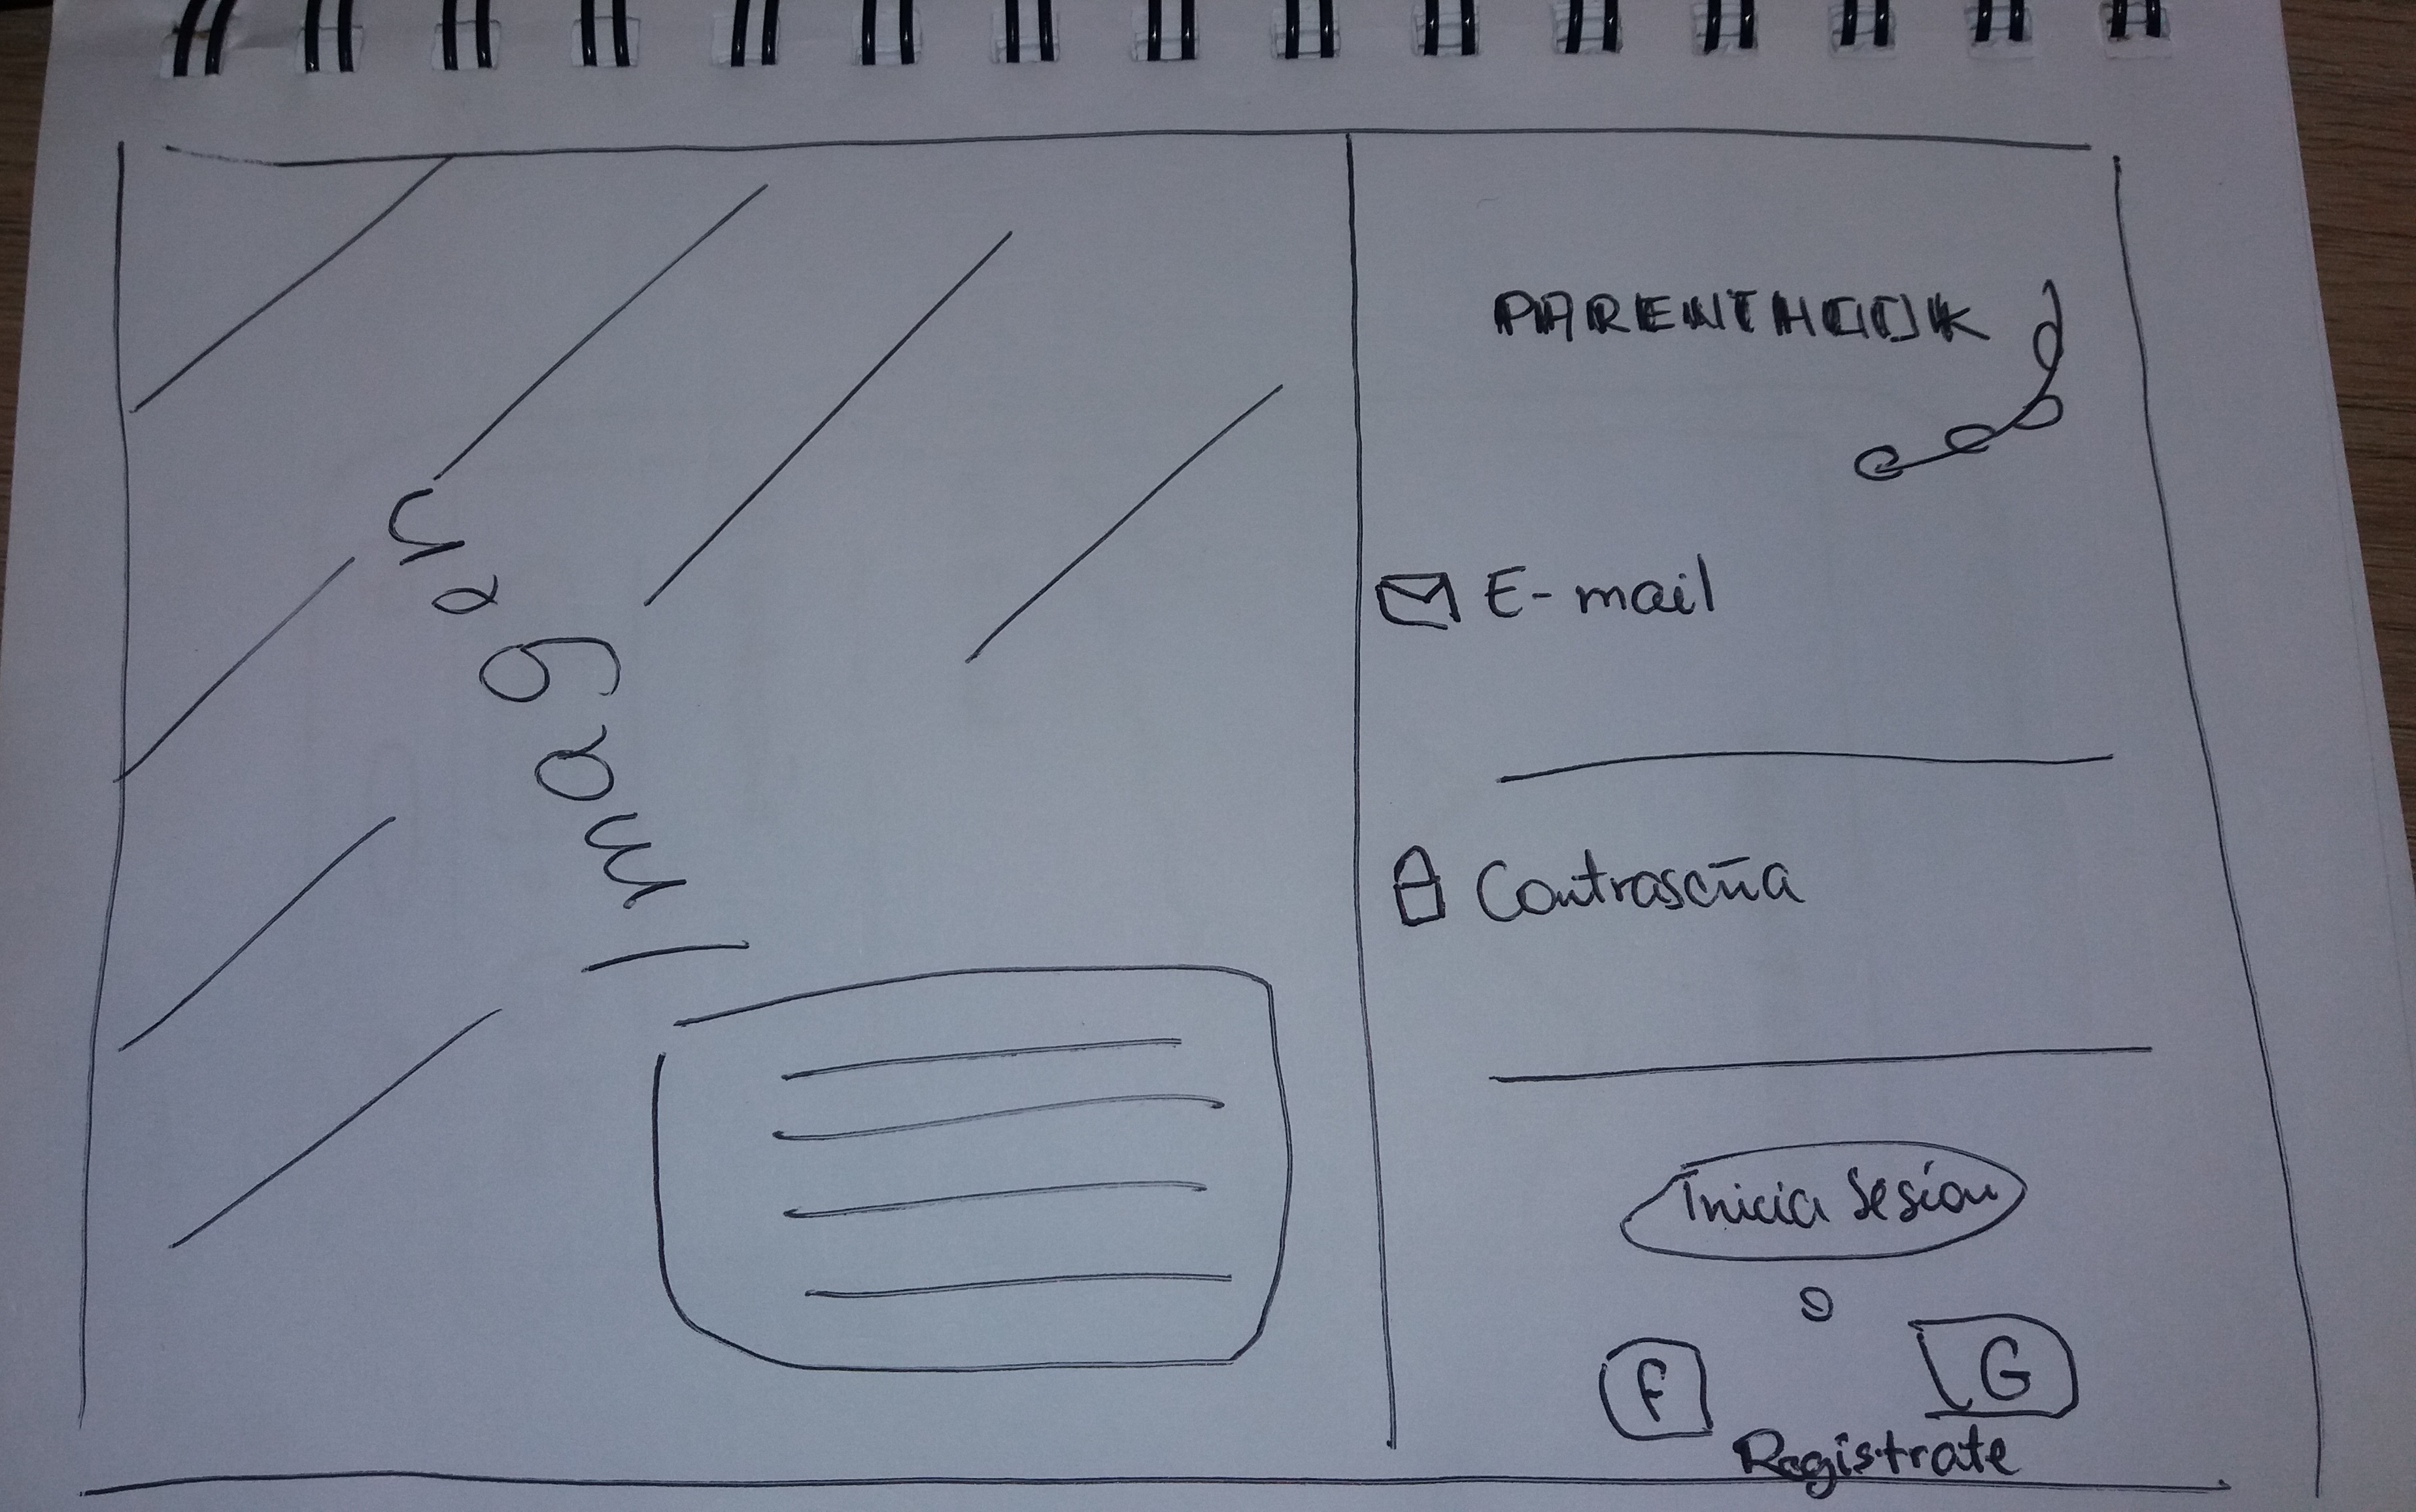 Imagen
PARENTHOOK
E-mail
Contraseña
Inicia Sesión
o
F
G
Registrate